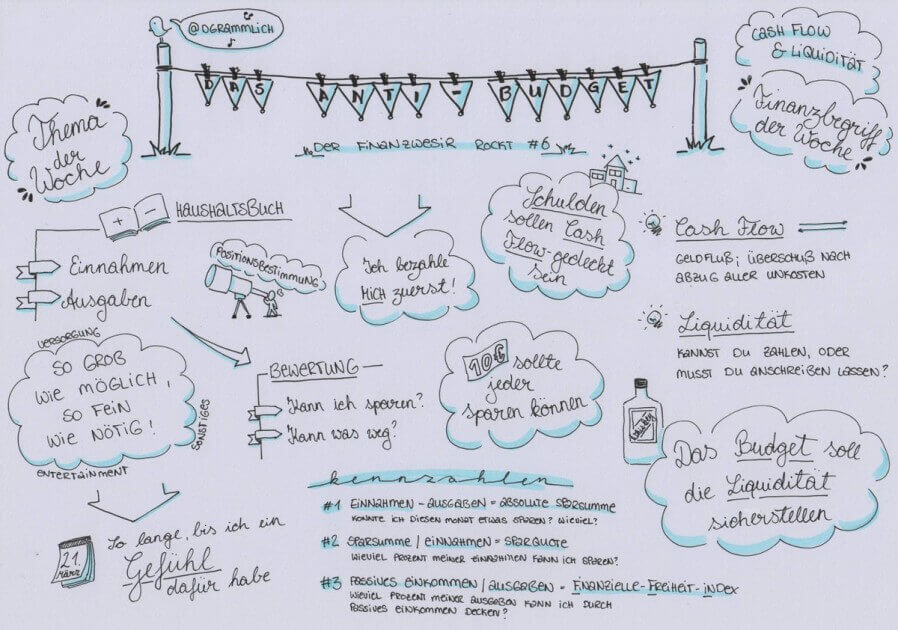 @DGRAMMLICH
DAS ANTI-BUDGET
DER FINANZWESIR ROCKT #6
CASH FLOW
& LIQUIDITÄT
Finanzbegriff
der Woche
Thema
der
Woche
+ -
HAUSHALTSBUCH
Einnahmen
Ausgaben
POSITIONSBESTIMMUNG
Ich bezahle
MICH zuerst!
Schulden
sollen Cash
Flow-gedeckt
sein
Cash Flow
GELDFLUß; ÜBERSCHUß NACH
ABZUG ALLER UNKOSTEN
Liquidität
KANNST DU ZAHLEN, ODER
MUSST DU ANSCHREIBEN LASSEN?
VERSORGUNG
SO GROB
WIE MÖGLICH,
SO FEIN
WIE NÖTIG!
SONSTIGES
ENTERTAINMENT
BEWERTUNG
Kann ich sparen?
Kann was weg?
10€ sollte
jeder
sparen können
Whiskey
Das Budget soll
die Liquidität
sicherstellen
21.
März
So lange, bis ich ein
Gefühl
dafür habe
kennzahlen
#1 EINNAHMEN - AUSGABEN = ABSOLUTE SPARSUMME
KONNTE ICH DIESEN MONAT ETWAS SPAREN? WIEVIEL?
#2 SPARSUMME / EINNAHMEN = SPARQUOTE
WIEVIEL PROZENT MEINER EINNAHMEN KANN ICH SPAREN?
#3 PASSIVES EINKOMMEN / AUSGABEN = FINANZIELLE-FREIHEIT-INDEX
WIEVIEL PROZENT MEINER AUSGABEN KANN ICH DURCH
PASSIVES EINKOMMEN DECKEN?